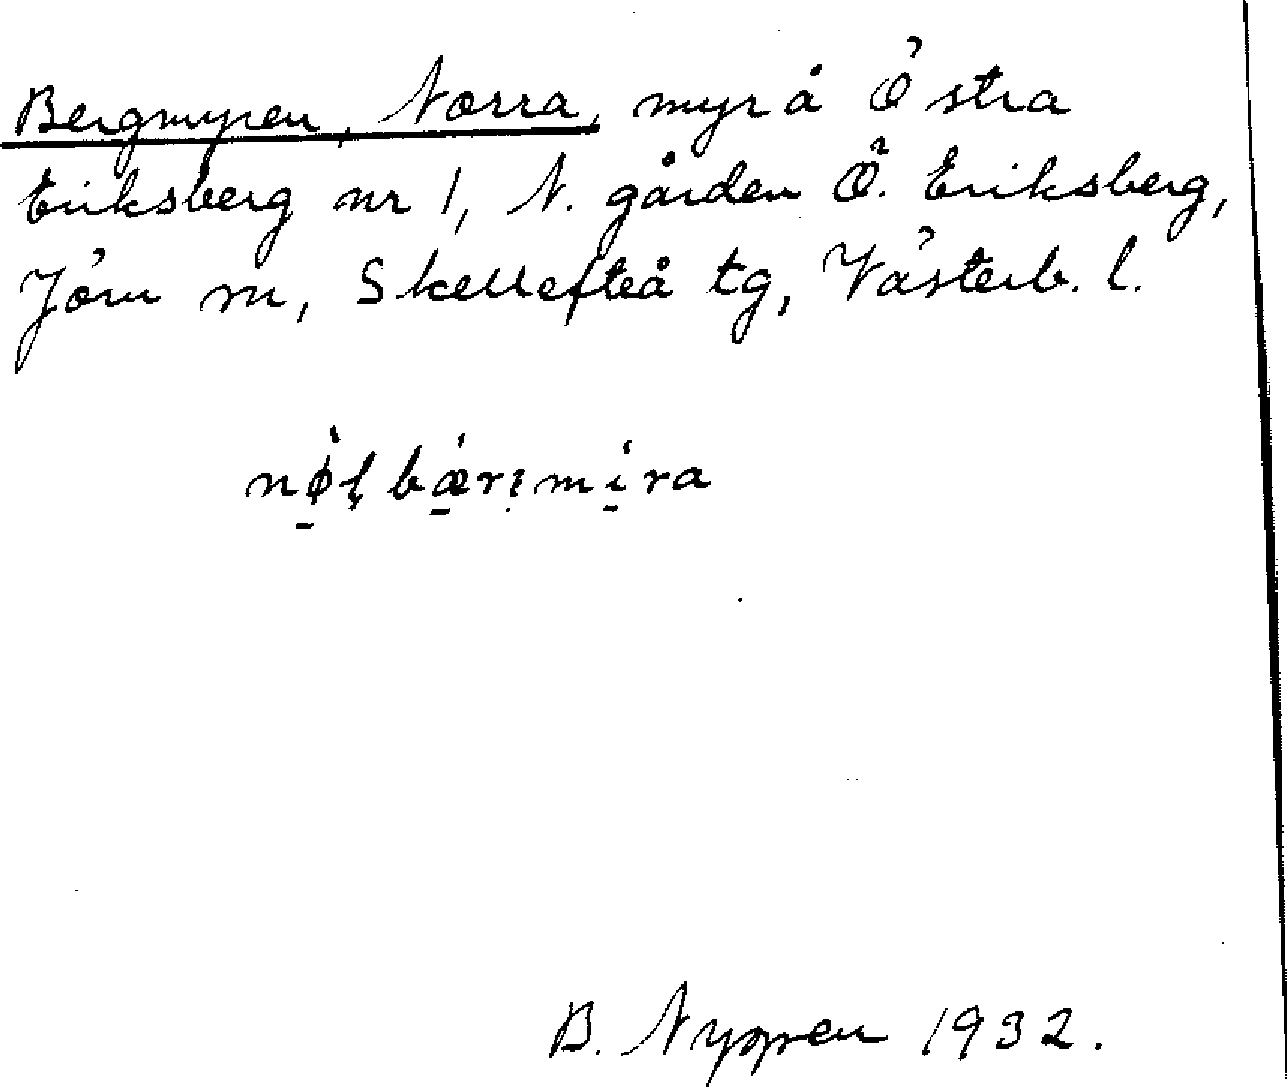 Bergmyren, Norra, myr å Östra
Eriksberg nr 1, N. gården Ö. Eriksberg,
Jörn sn, Skellefteå tg, Västerb. l.
B. Nyppen 1932.